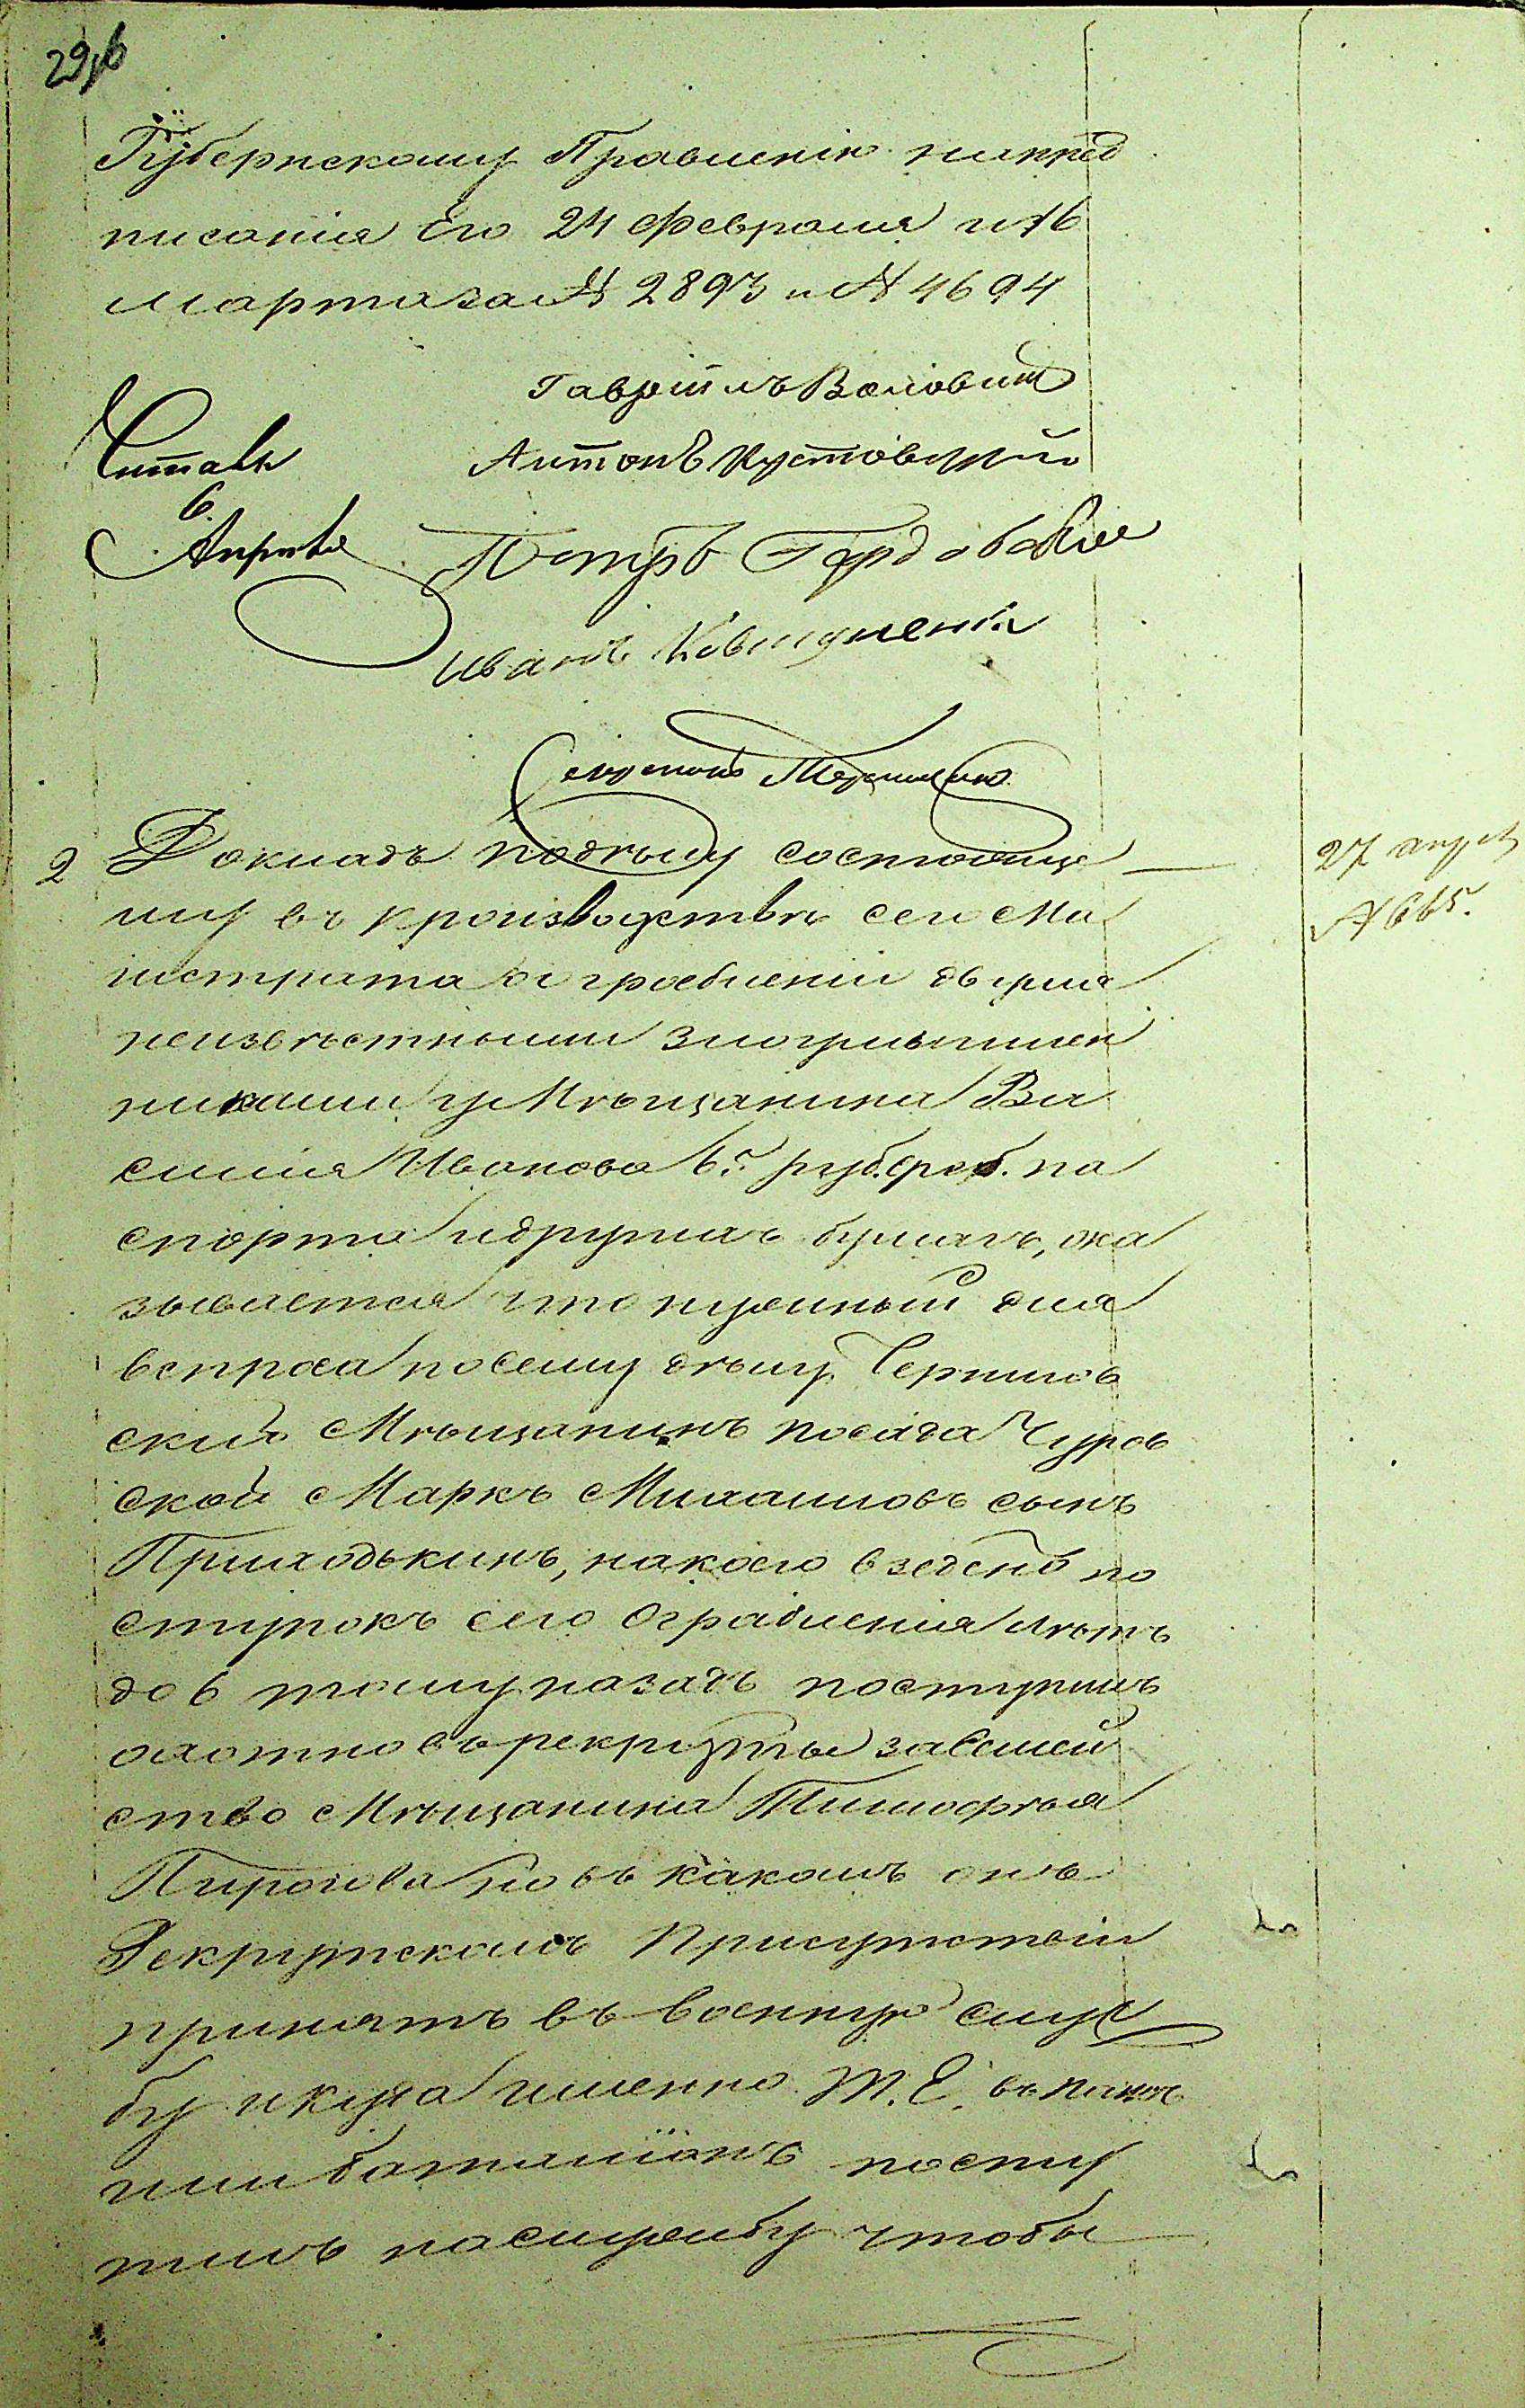 296
Губернскому Правленію на пред
писанія Его 24 февраля и 16
марта за № 2893 и № 4694
Гавріилъ
Читалъ
Антонъ
6
Апрѣля
Петръ
Иванъ
Секретарь
2 Докладъ по дѣлу состояще
му въ производствѣ сего Ма
гистрата о ограбленіи двумя
неизвѣстными злоумышлен
никами у Мѣщанина Ва
силія Иванова 6 руб. сереб. па
спорта и другихъ бумагъ, ока
зывается что нужный для
вспроса по сему дѣлу Чернигов
скій Мѣщанинъ посада Чуров
ской Маркъ Михаиловъ сынъ
Приходькинъ, на коего взведенъ по
ступокъ сего ограбленія лѣтъ
до 6 тому назадъ поступилъ
охотно въ рекруты за семей
ство Мѣщанина Тимофѣя
Пирогова но въ какомъ онъ
Рекрутскомъ Присутствіи
принятъ въ военную служ
бу и куда именно т. е. въ полкъ
или баталіонъ посту
пилъ на службу чтобы
27 апрѣл
№ 665.